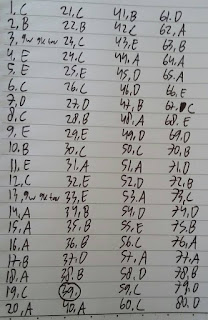 1, C 21, C 41, B 61, D
2, B 22, B 42, C 62, A
23, C 43, E 63, B
4, E 24, C 44, A 64, A
5, E 25, E 45, D 65, A
6, C 26, C 46, D 66, E
7, D 27, D 47, B 67, C
8, C 28, B 48, A 68, E
9, E 29, E 49, D 69, D
10, B 30, C 50, C 70, B
11, E 31, A 51, A 71, D
12, C 32, E 52, D 72, B
33, E 53, A 73, C
14, A 34, B 54, D 74, D
15, A 35, B 55, E 75, B
16, A 36, B 56, C 76, A
17, B 37, D 57, A 77, A
18, A 38, B 58, D 78, B
19, C 39, 59, C 79, D
20, A 40, A 60, C 80, D